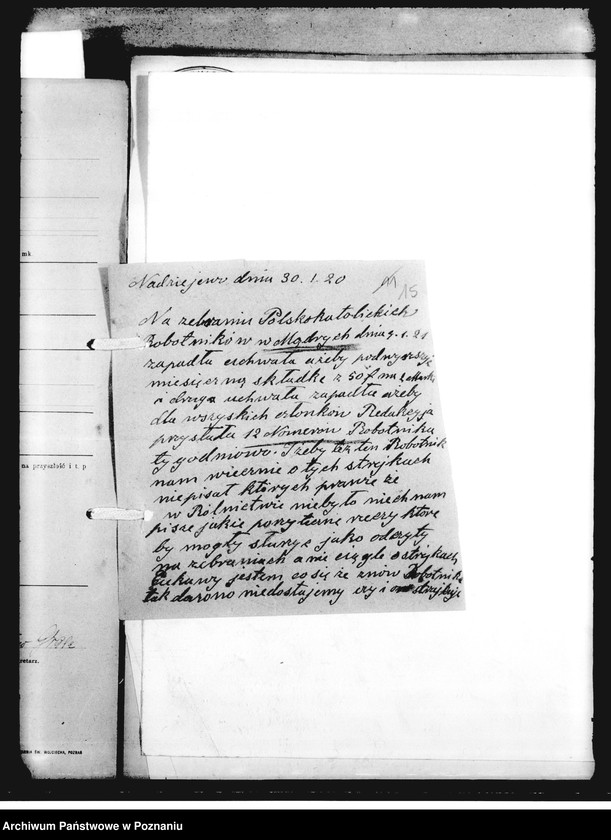 mk
na przyszłość i t. p
retarz.
ŚW. WOJCIECHA, POZNAŃ
Nadziejewo dniu 30.1.20
15
Na zebraniu Polskokatolickich
Robotników w Mądrych dnia 9.1.20
zapadła uchwała ażeby podwyższyć
miesięczną składkę z 50 f na 1 Markę
i druga uchwała zapadła ażeby
dla wszyskich członków Redakcyja
przystała 12 Nomerów Robotnika
tygodniowo. Ażeby też ten Robotnik
nam wiecznie o tych strejkach
niepisał których prawie że
w Rólnictwie niebyło niech nam
pisze jakie pozyteczne rzeczy które
by mogły służyć jako odczyty
na zebraniach a nie ciągle o strejkach
Ciekawy jestem co się że znów Robotnika
tak darono niedostajemy czy i on strejkuje
Archiwum Państwowe w Poznaniu